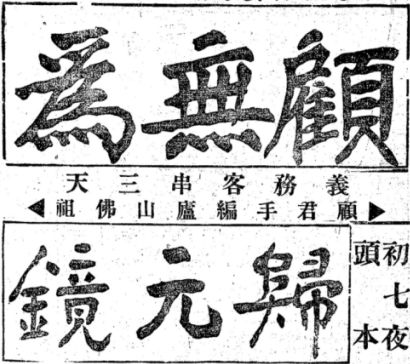 顧無爲
義務客串三天
顧君手編廬山佛祖
初七夜
頭本
歸元鏡